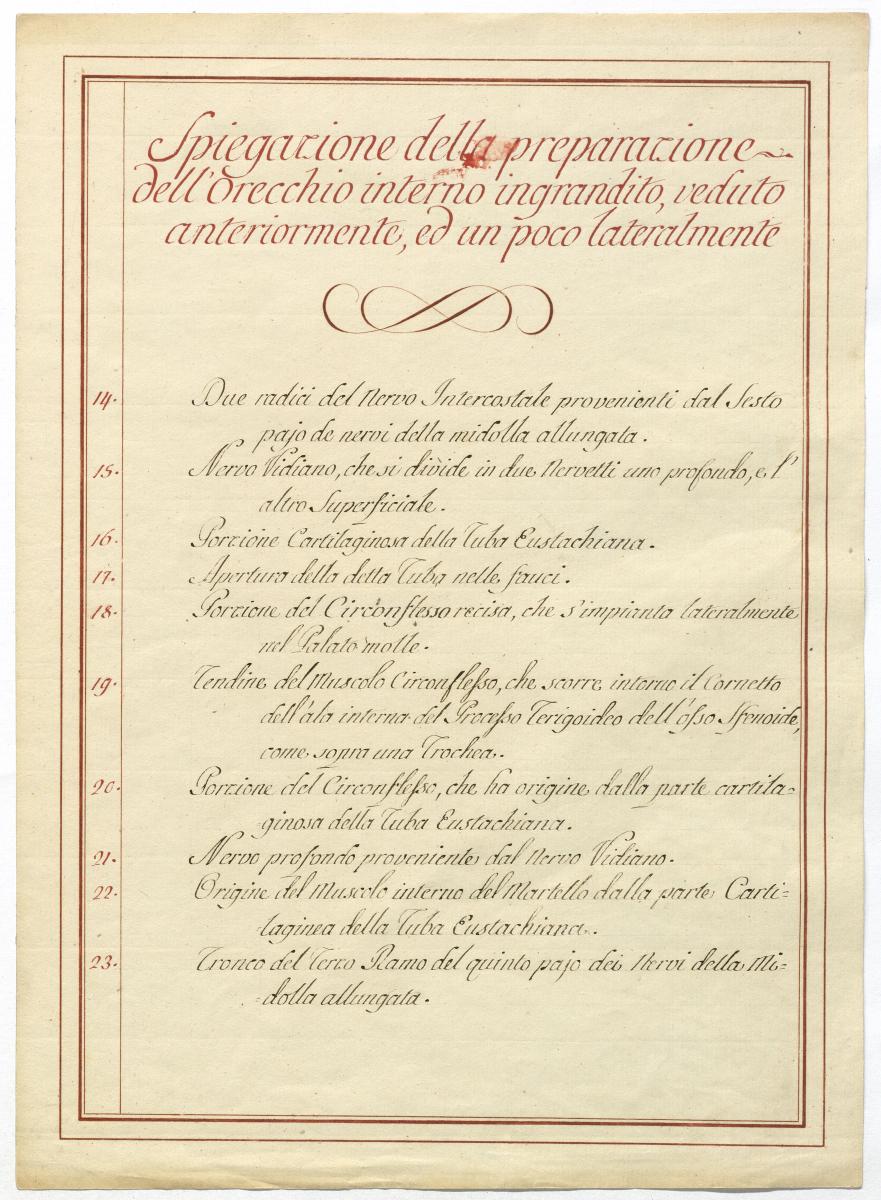 Spiegazione della preparazione
dell'Orecchio interno ingrandito, veduto
anteriormente, ed un poco lateralmente
14. Due radici del Nervo Intercostale provenienti dal Sesto
pajo de nervi della midolla allungata.
15. Nervo Vidiano, che si divide in due Nervetti uno profondo, e l'
altro Superficiale.
16. Porzione Cartilaginosa della Tuba Eustachiana.
17. Apertura della detta Tuba nelle fauci.
18. Porzione del Circonflesso recisa, che s'impianta lateralmente
nel Palato molle.
19. Tendine del Muscolo Circonflesso, che scorre intorno il Cornetto
dell'ala interna del Processo Terigoideo dell'osso Sfenoide,
come sopra una Troclea.
20. Porzione del Circonflesso, che ha origine dalla parte cartila=
ginosa della Tuba Eustachiana.
21. Nervo profondo proveniente dal Nervo Vidiano.
22. Origine del Muscolo interno del Martello dalla parte Carti=
laginea della Tuba Eustachiana.
23. Tronco del Terzo Ramo del quinto pajo dei Nervi della Mi=
=dolla allungata.